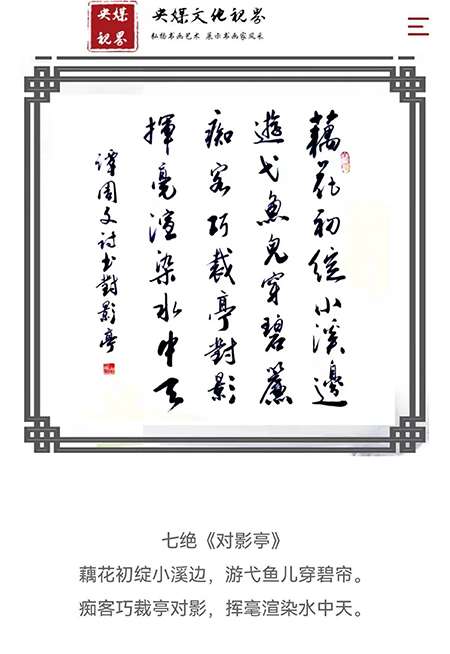 央媒视界
央媒文化视界
弘扬书画艺术 展示书画家风采
藕花初綻小溪邊
遊弋魚兒穿碧簾
痴客巧裁亭對影
揮毫渲染水中天
譚周文詩书對影亭
七绝《对影亭》
藕花初绽小溪边，游弋鱼儿穿碧帘。
痴客巧裁亭对影，挥毫渲染水中天。